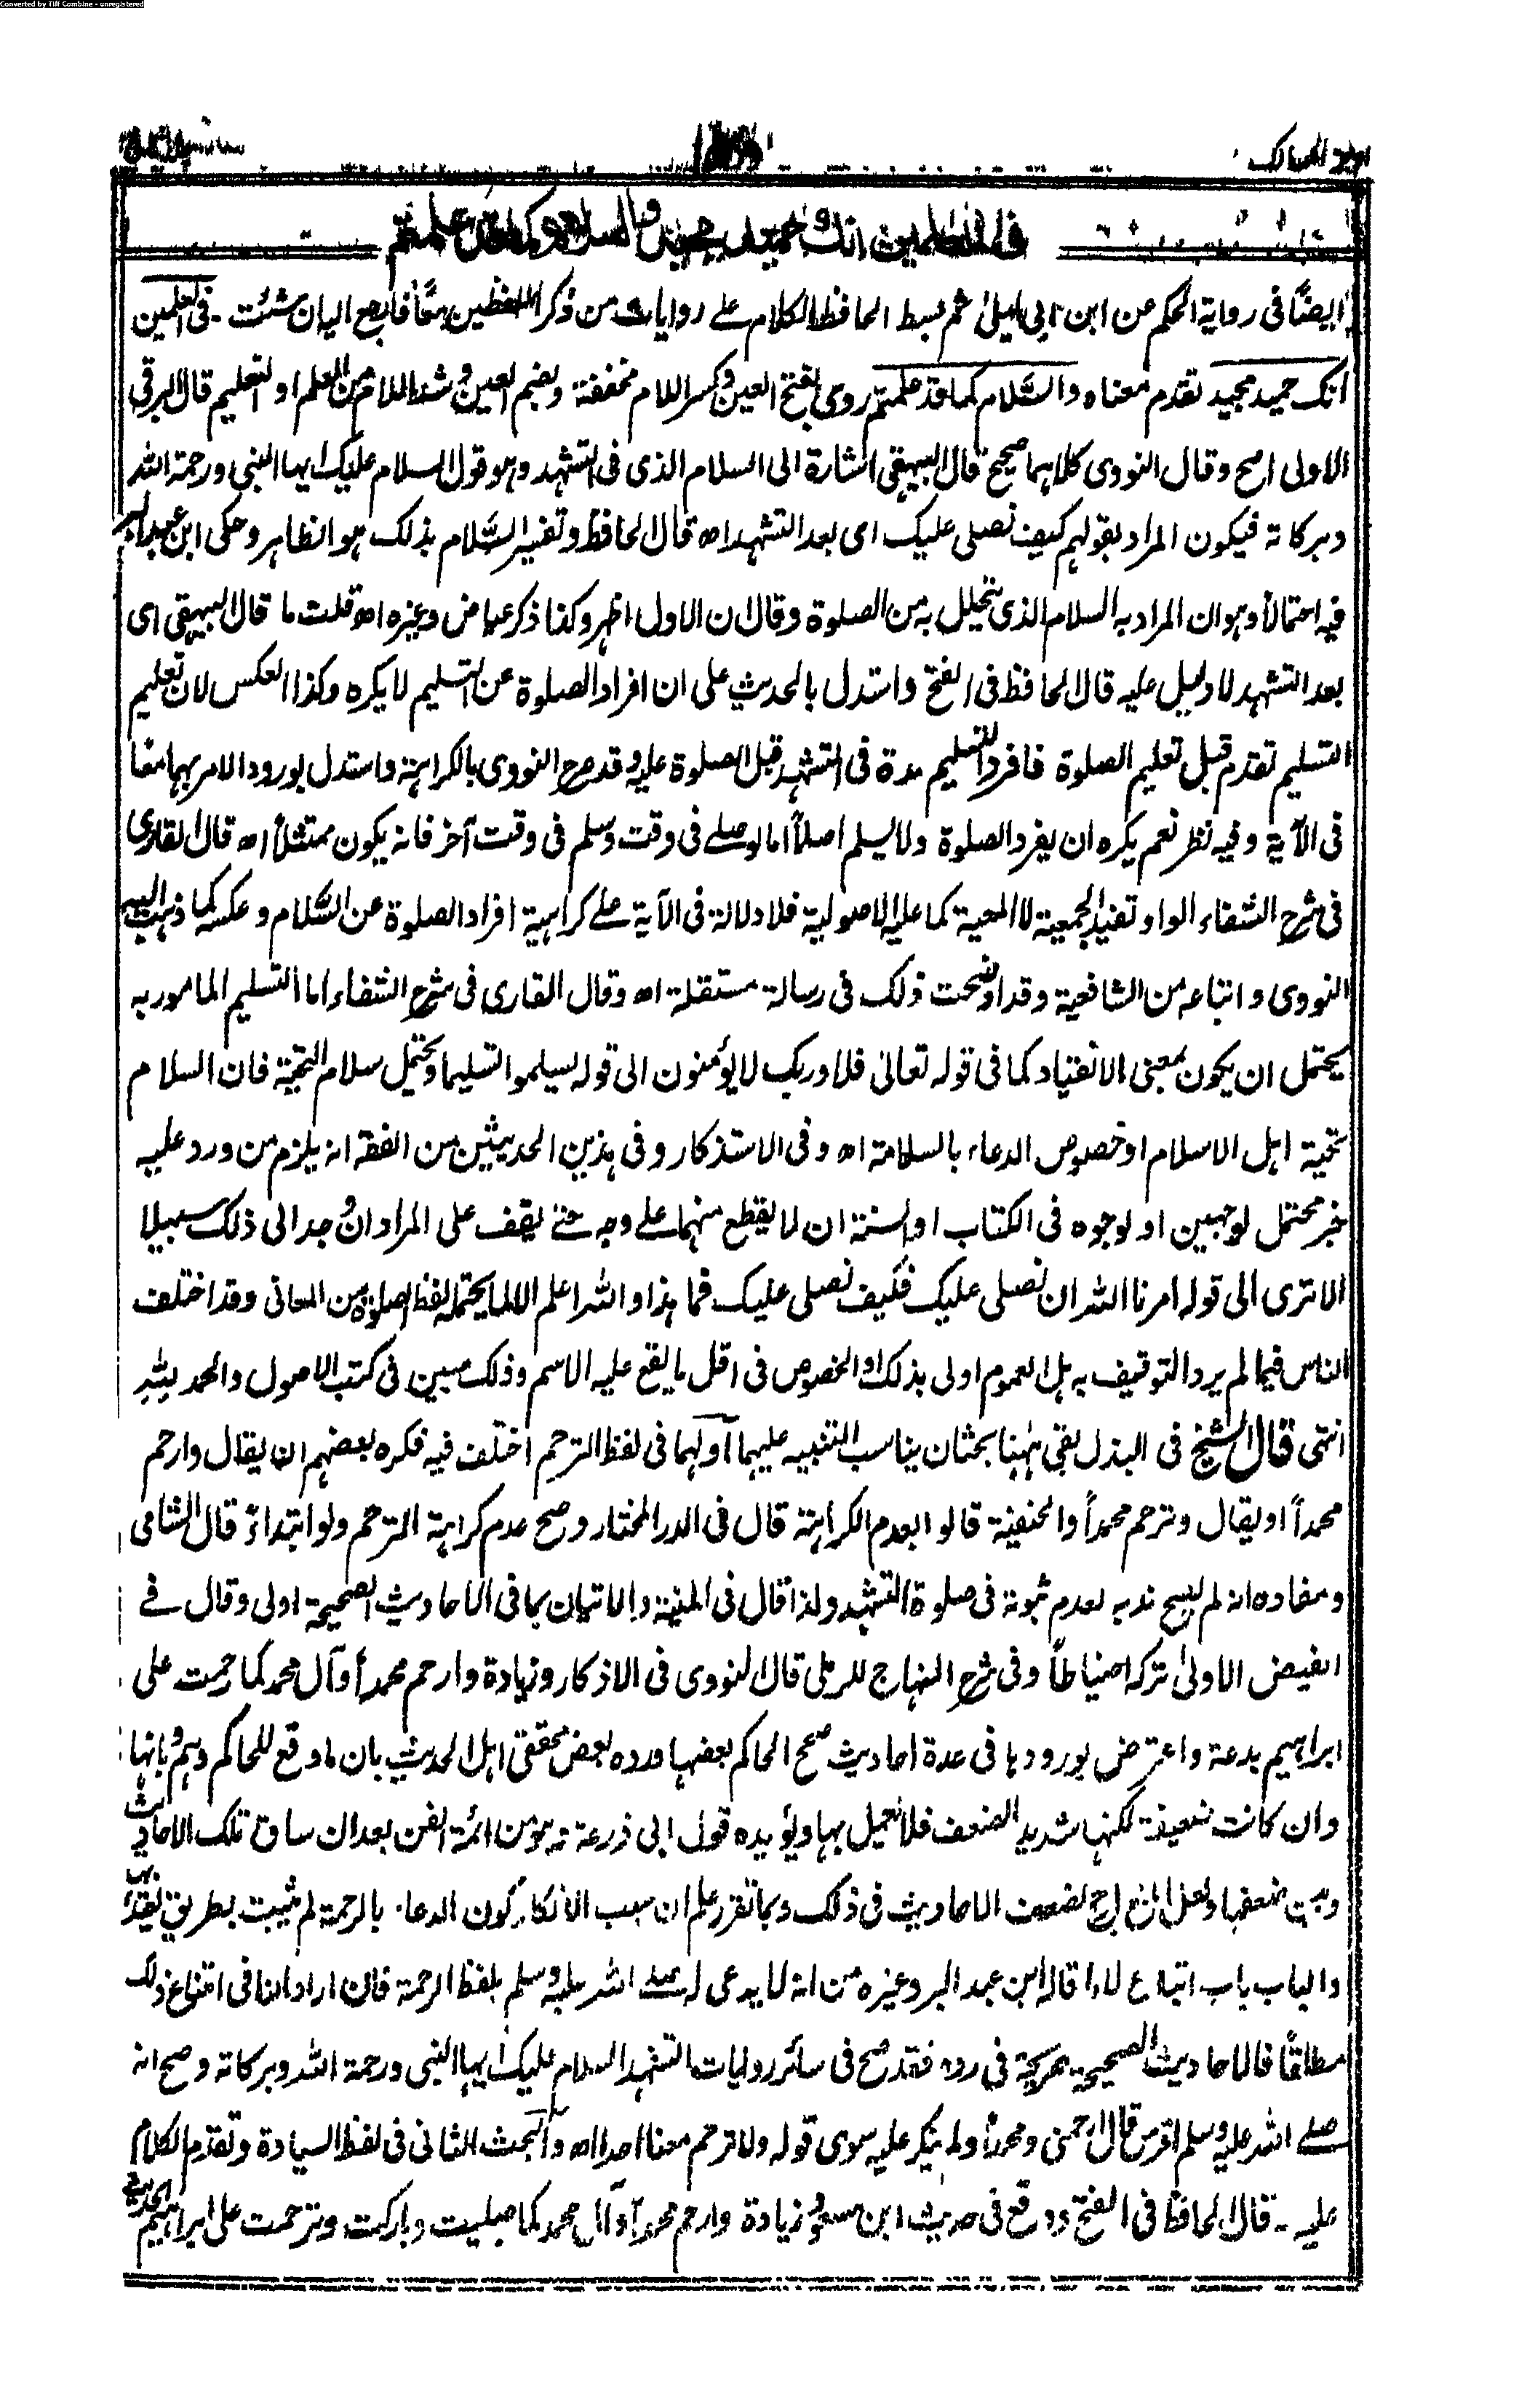 Converted by Tiff Combine - unregistered
اوجز المسالك
في العالمين انك حميد مجيد والسلام كما قد علمتم
ايضًا في رواية الحكم عن ابن ابي ليلىٰ ثم بسط الحافظ الكلام على روايات من ذكر اللفظين معًا فارجع اليه ان شئت ـ في العلمين
انك حميد مجيد تقدم معناه والسَّلام كما قد علمتم روى بفتح العين وكسر اللام مخففة وبضم العين وشد اللام من العلم او التعليم قال البرقي
الاولى اصح وقال النووى كلاهما صحيح قال البيهقى اشارة الى السلام الذى فى التشهد وهو قول السلام عليك ايها النبى ورحمة الله
وبركاته فيكون المراد بقولهم كيف نصلى عليك اى بعد التشهد اه قال الحافظ وتفسير السَّلام بذلك هو الظاهر وحكى ابن عبد البر
فيه احتمالاً وهو ان المراد به السلام الذى يتحلل به من الصلوة وقال ان الاول اظهر وكذا ذكر عياض وغيره اه قلت ما قال البيهقى اى
بعد التشهد لا دليل عليه قال الحافظ فى الفتح واستدل بالحديث على ان افراد الصلوة عن التسليم لا يكره وكذا العكس لان تعليم
التسليم تقدم قبل تعليم الصلوة فافرد التسليم مدة فى التشهد قبل الصلوة عليه وقد صرح النووى بالكراهة واستدل بورود الامر بهما معًا
فى الآية وفيه نظر نعم يكره ان يفرد الصلوة ولا يسلم اصلاً اما لو صلے فى وقت وسلم فى وقت آخر فانه يكون ممتثلاً اه قال القارى
فى شرح الشفاء الواو تفيد الجمعية لا المعية كما عليه الاصولية فلا دلالة فى الآية علے كراهية افراد الصلوة عن السَّلام وعكسه كما ذهب اليه
النووى واتباعه من الشافعية وقد اوضحت ذلك فى رسالة مستقلة اه وقال القارى فى شرح الشفاء اما التسليم المامور به
يحتمل ان يكون بمعنى الانقياد كما فى قوله تعالىٰ فلا وربك لا يؤمنون الى قوله يسلموا تسليما ويحتمل سلام التحية فان السلام
تحية اهل الاسلام او خصوص الدعاء بالسلامة اه وفى الاستذكار وفى هذين الحديثين من الفقه انه يلزم من ورد عليه
خبر محتمل لوجهين او لوجوه فى الكتاب او السنة ان لا يقطع منهما علے وجه حتے يقف على المراد ان وجد الى ذلك سبيلا
الا ترى الى قوله امرنا الله ان نصلى عليك فكيف نصلى عليك فما هذا والله اعلم الا لما يحتمله لفظ الصلوة من المعانى وقد اختلف
الناس فيما لم يرد التوقيف به هل العموم اولى بذلك او الخصوص فى اقل ما يقع عليه الاسم وذلك مبين فى كتب الاصول والحمد لله
انتهى قال الشيخ فى البذل بقى ههنا بحثان يناسب التنبيه عليهما اولهما فى لفظ الترحم اختلف فيه فكره بعضهم ان يقال وارحم
محمداً او يقال وترحم محمداً والحنفية قالوا بعدم الكراهة قال فى الدر المختار وصح عدم كراهة الترحم ولو ابتداءً قال الشامى
ومفاده انه لم يصح ندبه لعدم ثبوته فى صلوة التشهد ولذا قال فى المنية والاتيان بما فى الاحاديث الصحيحة اولى وقال فے
الفيض الاولىٰ تركه احتياطاً وفى شرح المنهاج للرملى قال النووى فى الاذكار وزيادة وارحم محمداً وآل محمد كما رحمت على
ابراهيم بدعة واعترض بورودها فى عدة احاديث صحح الحاكم بعضها ورده بعض محققى اهل الحديث بان ما وقع للحاكم وهم وبانها
وان كانت ضعيفة لكنها شديد الضعف فلا يعمل بها ويؤيده قول ابى زرعة وهو من ائمة الفن بعد ان ساق تلك الاحاديث
وبين ضعفها ولعل المنع ارجح لضعف الاحاديث فى ذلك وبما تقرر علم ان سبب الانكار كون الدعاء بالرحمة لم يثبت بطريق يعتد به
والباب باب اتباع لا ما قاله ابن عبد البر وغيره من انه لا يدعى له صلے الله عليه وسلم بلفظ الرحمة فان اراد النافى امتناع ذلك
مطلقًا فالاحاديث الصحيحة صريحة فى رده فقد صح فى سائر روايات التشهد السلام عليك ايها النبى ورحمة الله وبركاته وصح انه
صلے الله عليه وسلم اقر من قال ارحمنى ومحمداً ولم ينكر عليه سوى قوله ولا ترحم معنا احدا اه والبحث الثانى فى لفظ السيادة وتقدم الكلام
عليه ـ قال الحافظ فى الفتح ووقع فى حديث ابن مسعود زيادة وارحم محمداً وآل محمد كما صليت وباركت وترحمت على ابراهيم الحديث